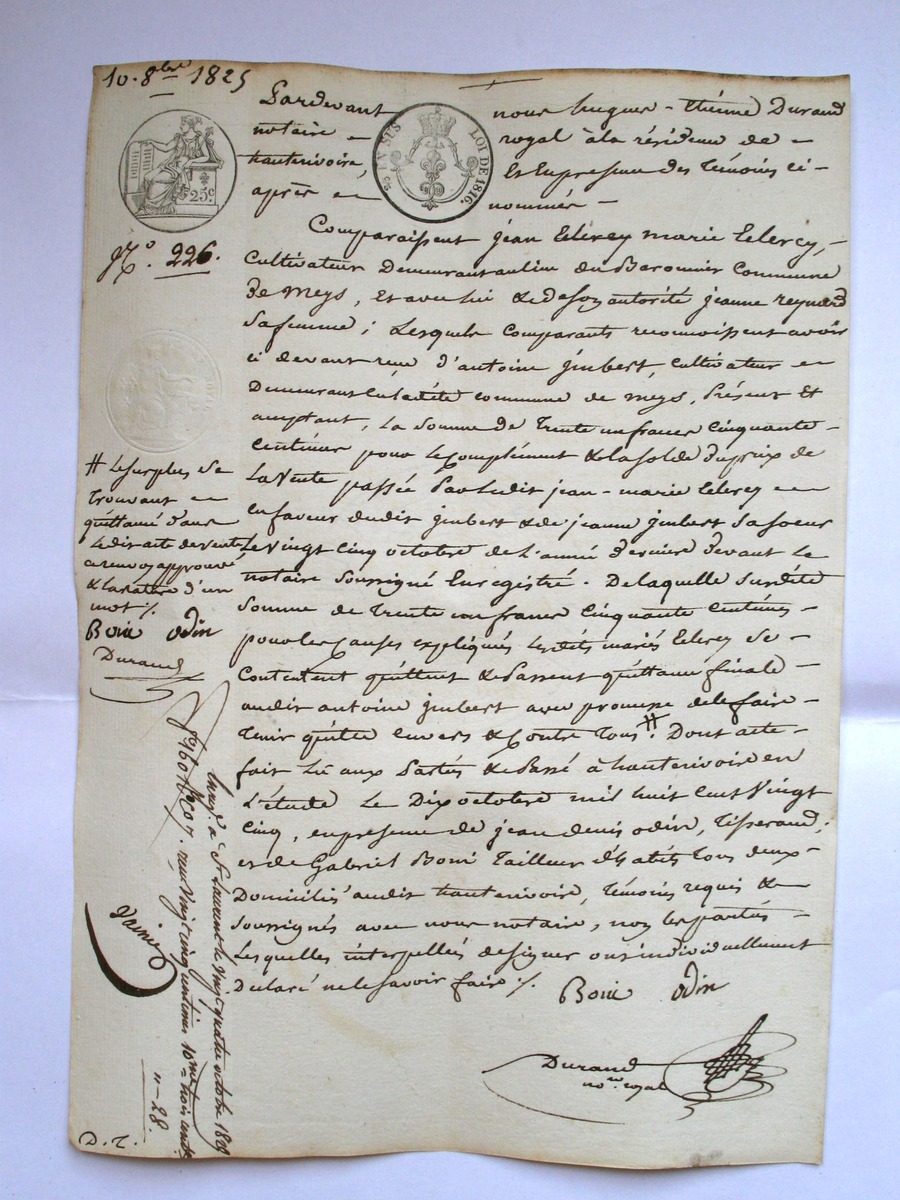 10. 8bre 1825
Pardevant nous hugues - thième Durand
notaire - royal à la résidence de -
hauterivoire, Et En presence des Témoins ci-
après - nommés -
TIMB. LOI DE 1816.
25c
N.o 226.
Comparaissent jean marie
Cultivateur Demeurant au lieu du Baronnier Commune
De Meys, Et avec lui & de son autorité jeanne reynard
Sa femme; Lesquels Comparants reconnoissent avoir
ci devant reçu d'antoine jmbert, Cultivateur -
Demeurant commune de Meys, Présent Et
acceptant, La Somme de Trente un francs Cinquante -
Centimes pour Le Complément & la solde Du prix de
La Vente passée Par Ledit jean - marie -
En faveur dudit jmbert & de jeanne jmbert Sa soeur
Le Vingt Cinq octobre de L'année Dernier Devant Le
notaire Soussigné Enregistré. De laquelle Susdite
Somme de Trente un francs Cinquante Centimes -
pour les Causes expliquées Lesdits mariés Se -
Contentent quittent & Passent quittance finale -
audit antoine jmbert avec promesse de le faire -
Tenir quitte Envers & Contre Tous #. Dont acte -
fait Lu aux Parties & Passé à hauterivoire En
L'étude Le Dix octobre mil huit Cent Vingt
Cinq, En presence de jean denis odin, Tisserand;
et de Gabriel Boni Tailleur d'habits Tous deux -
Domiciliés audit hauterivoire, Témoins requis &
Soussignés avec nous notaire, non les parties -
Lesquelles interpellées de signer ont individuellement
Declaré ne le savoir faire ./.
Boni odin
Durand
no.re royal
# Le surplus Se
Trouvant -
quittancé dans
Ledit acte de vente
ce renvoi approuvé
& La rature d'un
mot ./.
Boni odin
Durand
Enreg.é à St Laurent le Vingt quatre octobre 1825
f.o 160 . reçu Vingt cinq centimes 10.me trois cent.s
11 - 28
D. T.